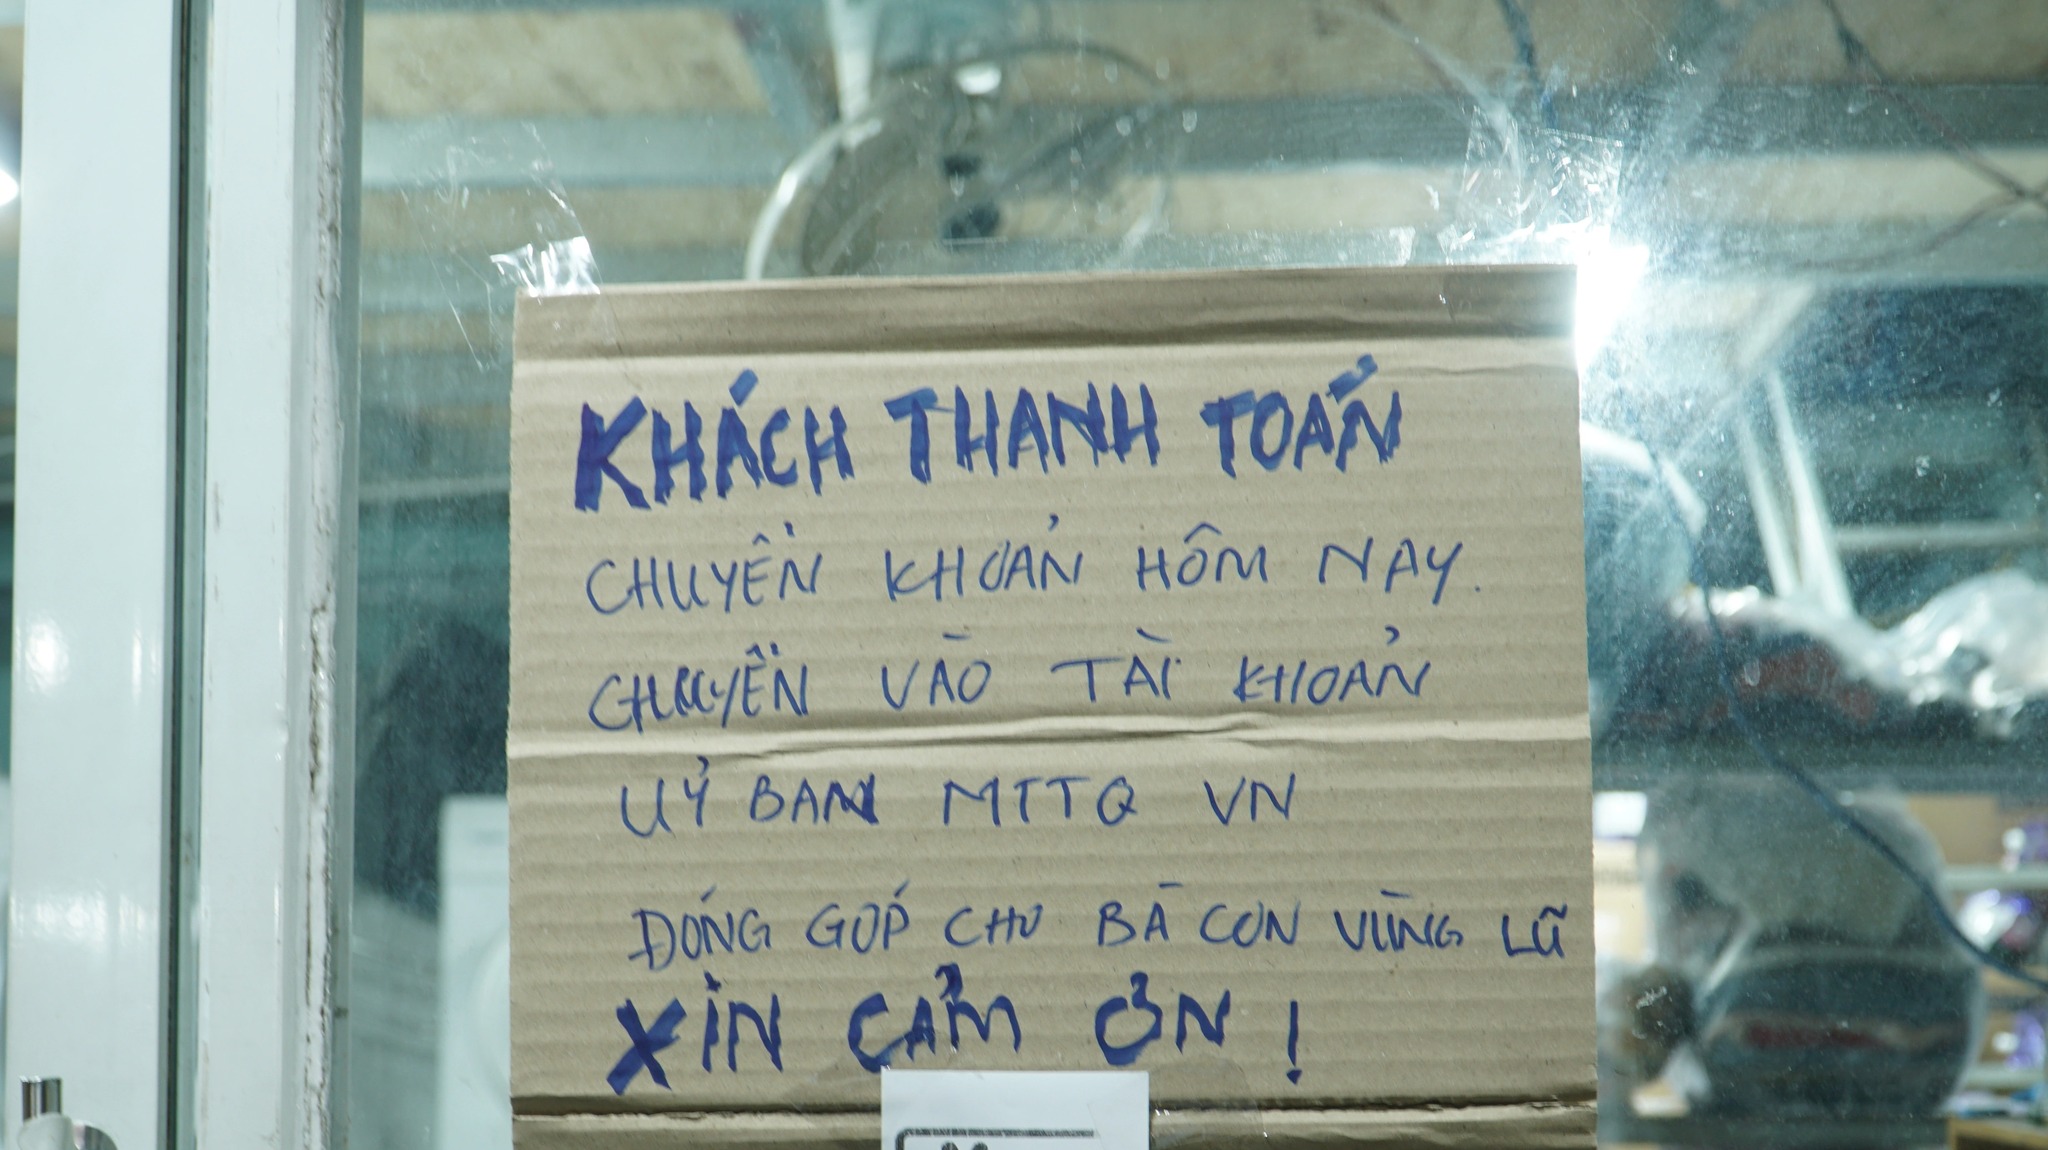 KHÁCH THANH TOÁN
CHUYỂN KHOẢN HÔM NAY.
CHUYỂN VÀO TÀI KHOẢN
UỶ BAN MTTQ VN
ĐÓNG GÓP CHO BÀ CON VÙNG LŨ
XIN CẢM ƠN !